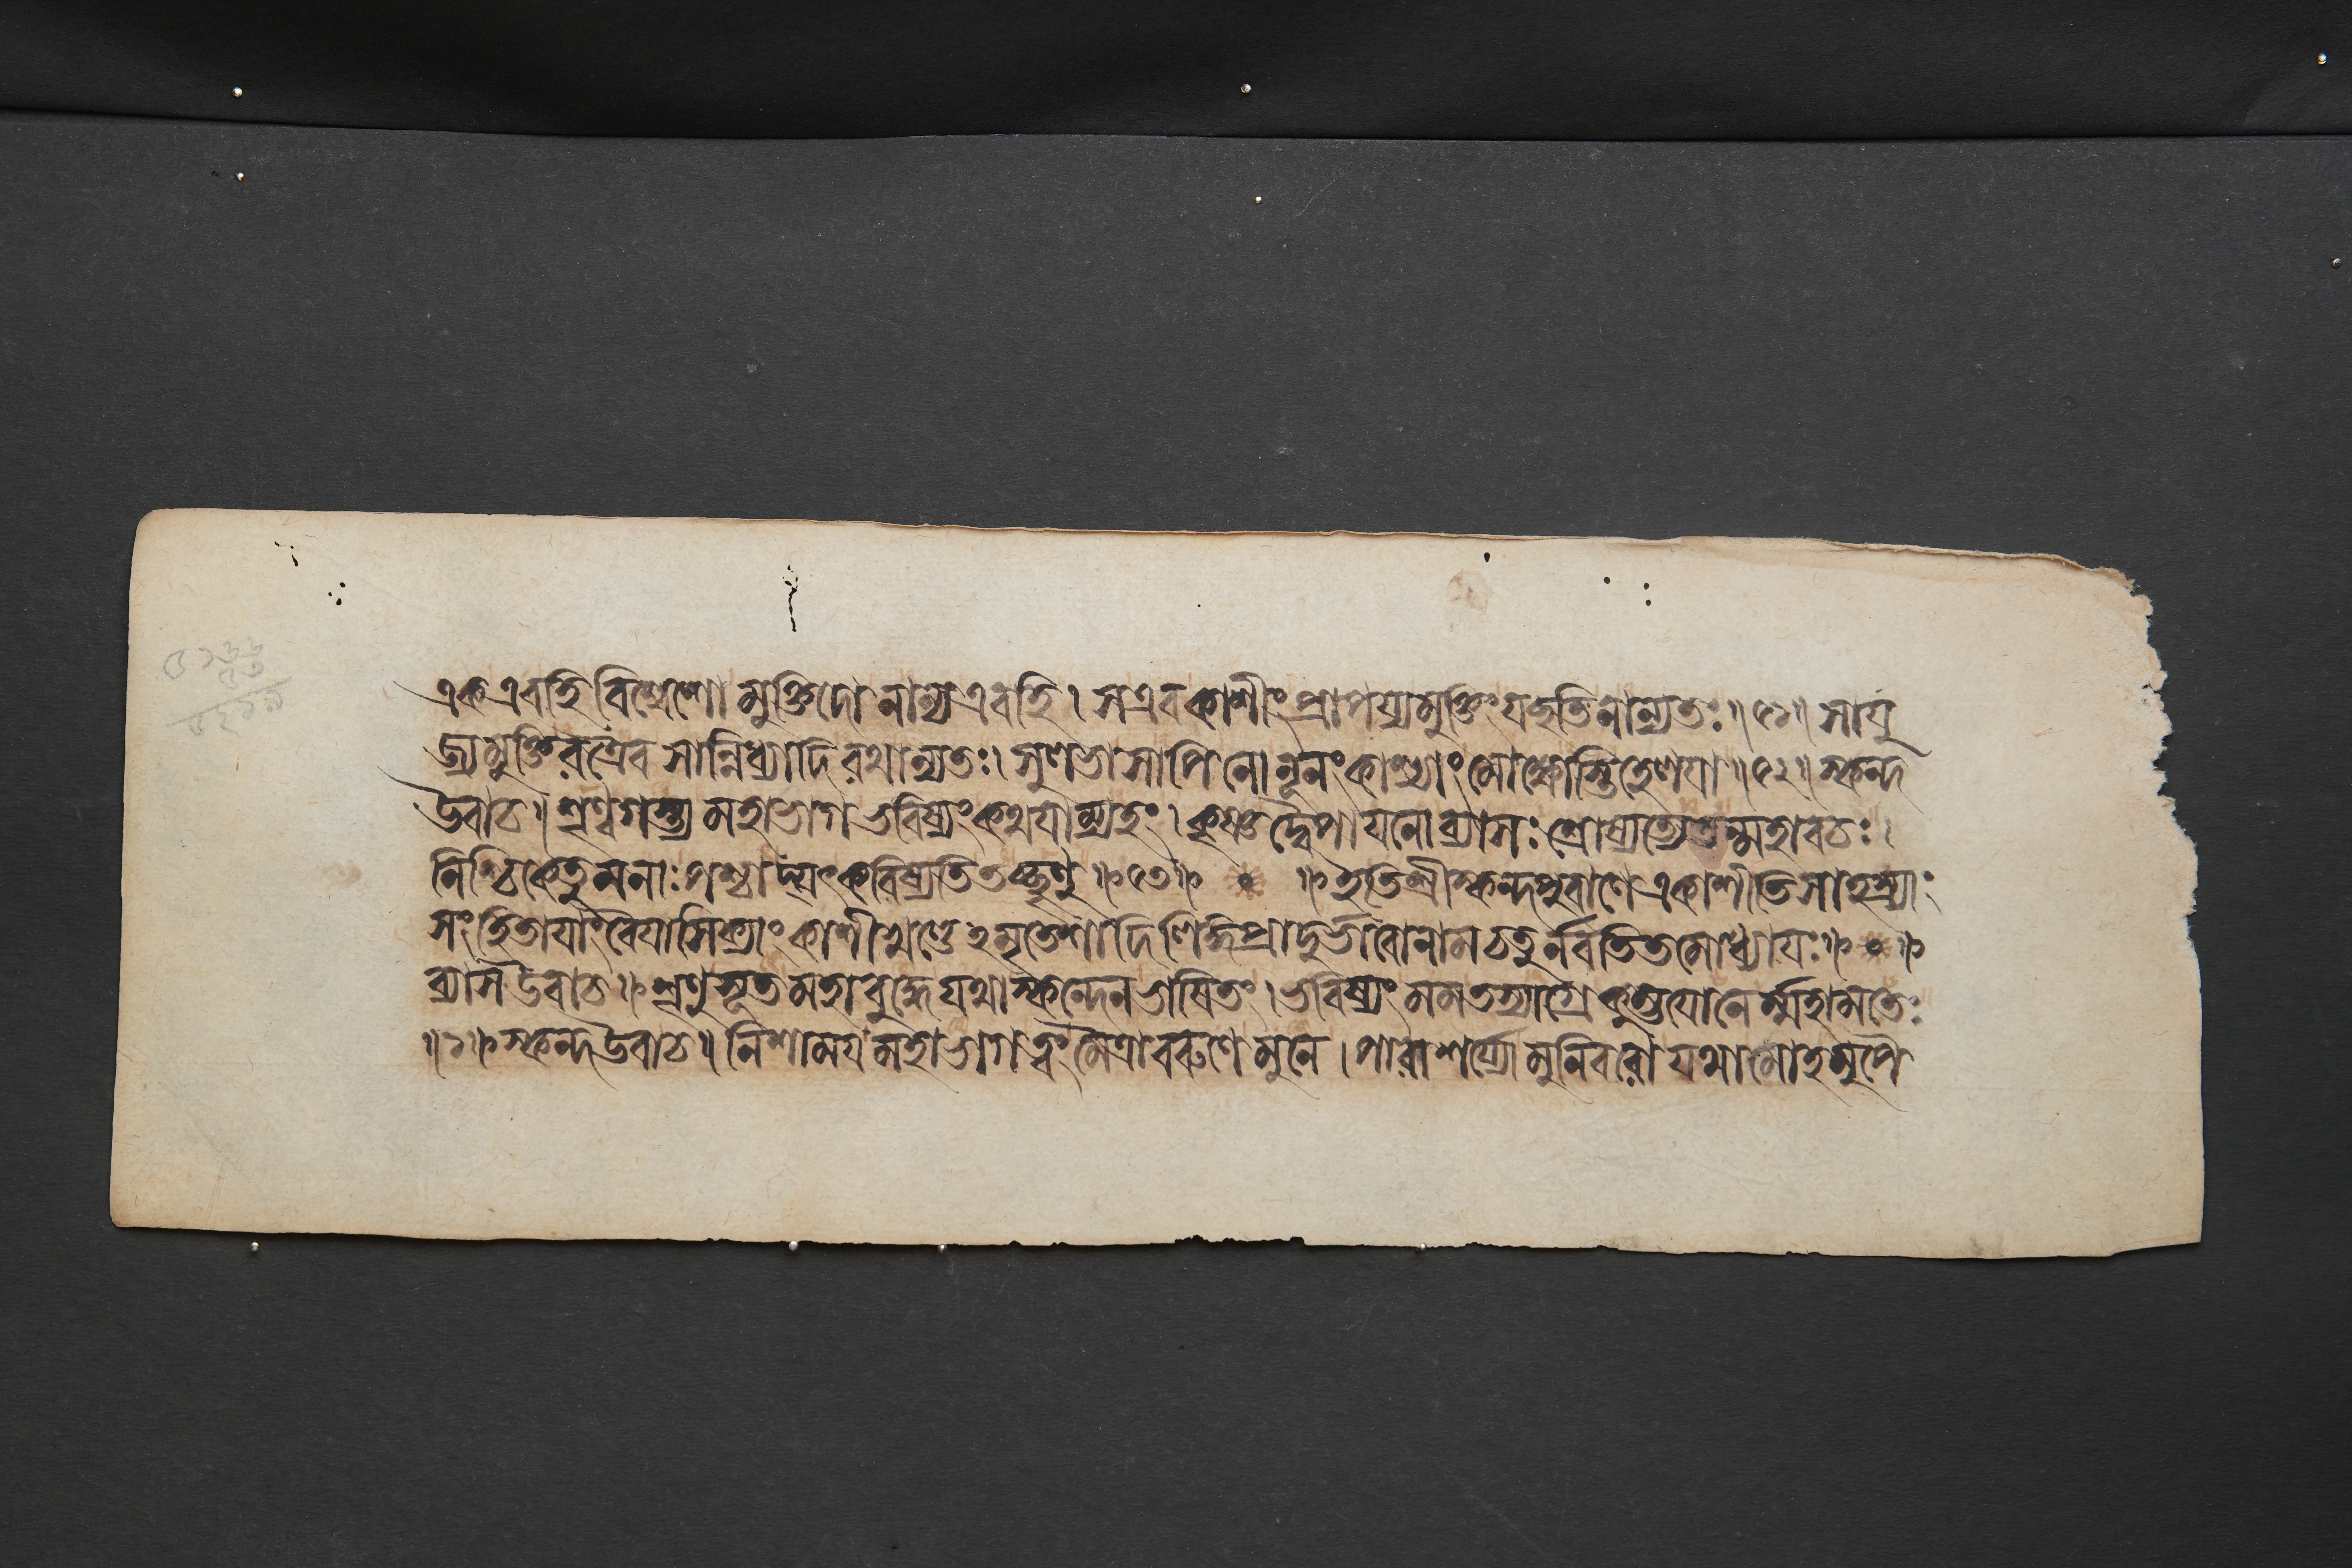 এক এব হি বিশ্বেশো মুক্তিদো নান্য এব হি । স এব কাশীং প্রাপয্য মুক্তিং যচ্ছতি নান্যতঃ ॥ ৫১ ॥ সাযু
জ্য মুক্তিরত্রৈব সান্নিধ্যাদিরথান্যতঃ । সুলভা সাপি নো নূনং কাশ্যাং মোক্ষোস্তি হেলযা ॥ ৫২ ॥ স্কন্দ
উবাচ ॥ শৃণ্বগস্ত্য মহাভাগ ভবিষ্যং কথযাম্যহং । কৃষ্ণদ্বৈপাযনো ব্যাসঃ শ্রোষ্যত্যেতন্মহাবচঃ ।
নিশ্চিকেতুমনাঃ পশ্চাদ্যৎ করিষ্যতি তচ্ছৃণু ॥ ৫৩ ॥ ॥ ইতি শ্রীস্কন্দপুরাণে একাশীতিসাহস্র্যাং
সংহিতাযাং বৈযাসিক্যাং কাশীখণ্ডে ঽমৃতেশাদিলিঙ্গপ্রাদুর্ভাবোনাম চতুর্নবতিতমোধ্যাযঃ ॥ ০ ॥
ব্যাস উবাচ ॥ শৃণু সূত মহাবুদ্ধে যথা স্কন্দেন ভাষিতং । ভবিষ্যং মম তস্যাগ্রে কুম্ভযোনের্ম্মহামতেঃ
॥ ১ ॥ স্কন্দ উবাচ ॥ নিশাময মহাভাগ ত্বং মৈত্রাবরুণে মুনে । পারাশর্য্যো মুনিবরো যথা মোহমুপৈ